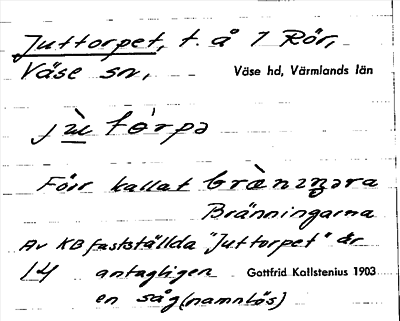 Juttorpet, t. å 1 Rör,
Väse sn, Väse hd, Värmlands län
jùtórpə
Förr kallat brànıŋəra
Bränningarna
Av KB fastställda "Juttorpet" är
14 antagligen Gottfrid Kallstenius 1903
en såg (namnlös)